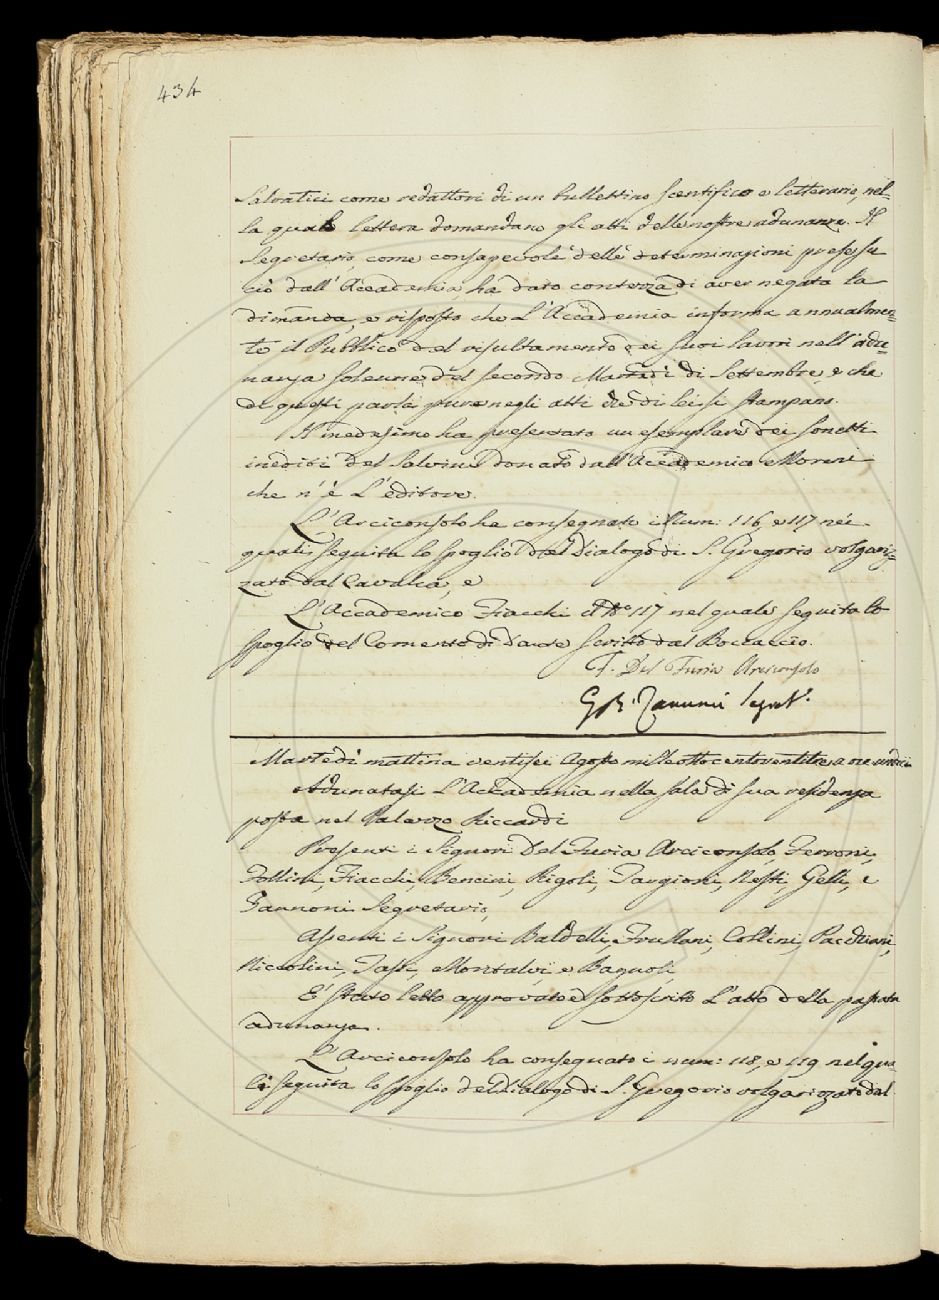 434
Salvatici come redattori di un bullettino scentifico e letterario, nel-
la quale lettera domandano gli atti delle nostre adunanze. Il
Segretario, come consapevole delle determinazioni prese su
ciò dall'Accademia, ha dato contezza di aver negata la
dimanda, e risposto che l'Accademia informa annualmen-
te il Pubblico del risultamento dei suoi lavori nell'adu-
nanza solenne del secondo Martedì di Settembre, e che
di questi parla pure negli atti che di lei si stampano.
Il medesimo ha presentato un esemplare dei sonetti
inediti del Salvini donato dall'Accademico Moreni
che n'è l'editore.
L'Arciconsolo ha consegnato i Num: 116, e 117 nei
quali seguita lo spoglio del Dialogo di S. Gregorio volgariz-
zato dal Cavalca, e
L'Accademico Fiacchi il N.o 117 nel quale seguita lo
spoglio del Comento di Dante scritto dal Boccaccio.
F. Del Furia Arciconsolo
G. B. Zannoni Segret.
Martedì mattina ventisei Agosto mille ottocentoventitre a ore undici
Adunatasi l'Accademia nella sala di sua residenza
posta nel Palazzo Riccardi
Presenti i Signori Del Furia Arciconsolo, Ferroni,
Follini, Fiacchi, Bencini, Rigoli, Targioni, Nesti, Gelli, e
Zannoni Segretario,
Assenti i Signori Baldelli, Frullani, Collini, Pacchiani,
Niccolini, Tassi, Montalvi e Bagnoli,
E' stato letto approvato e sottoscritto l'atto della passata
adunanza.
L'Arciconsolo ha consegnato i num: 118, e 119 nel qua-
li seguita lo spoglio del Dialogo di S. Gregorio volgarizzato dal